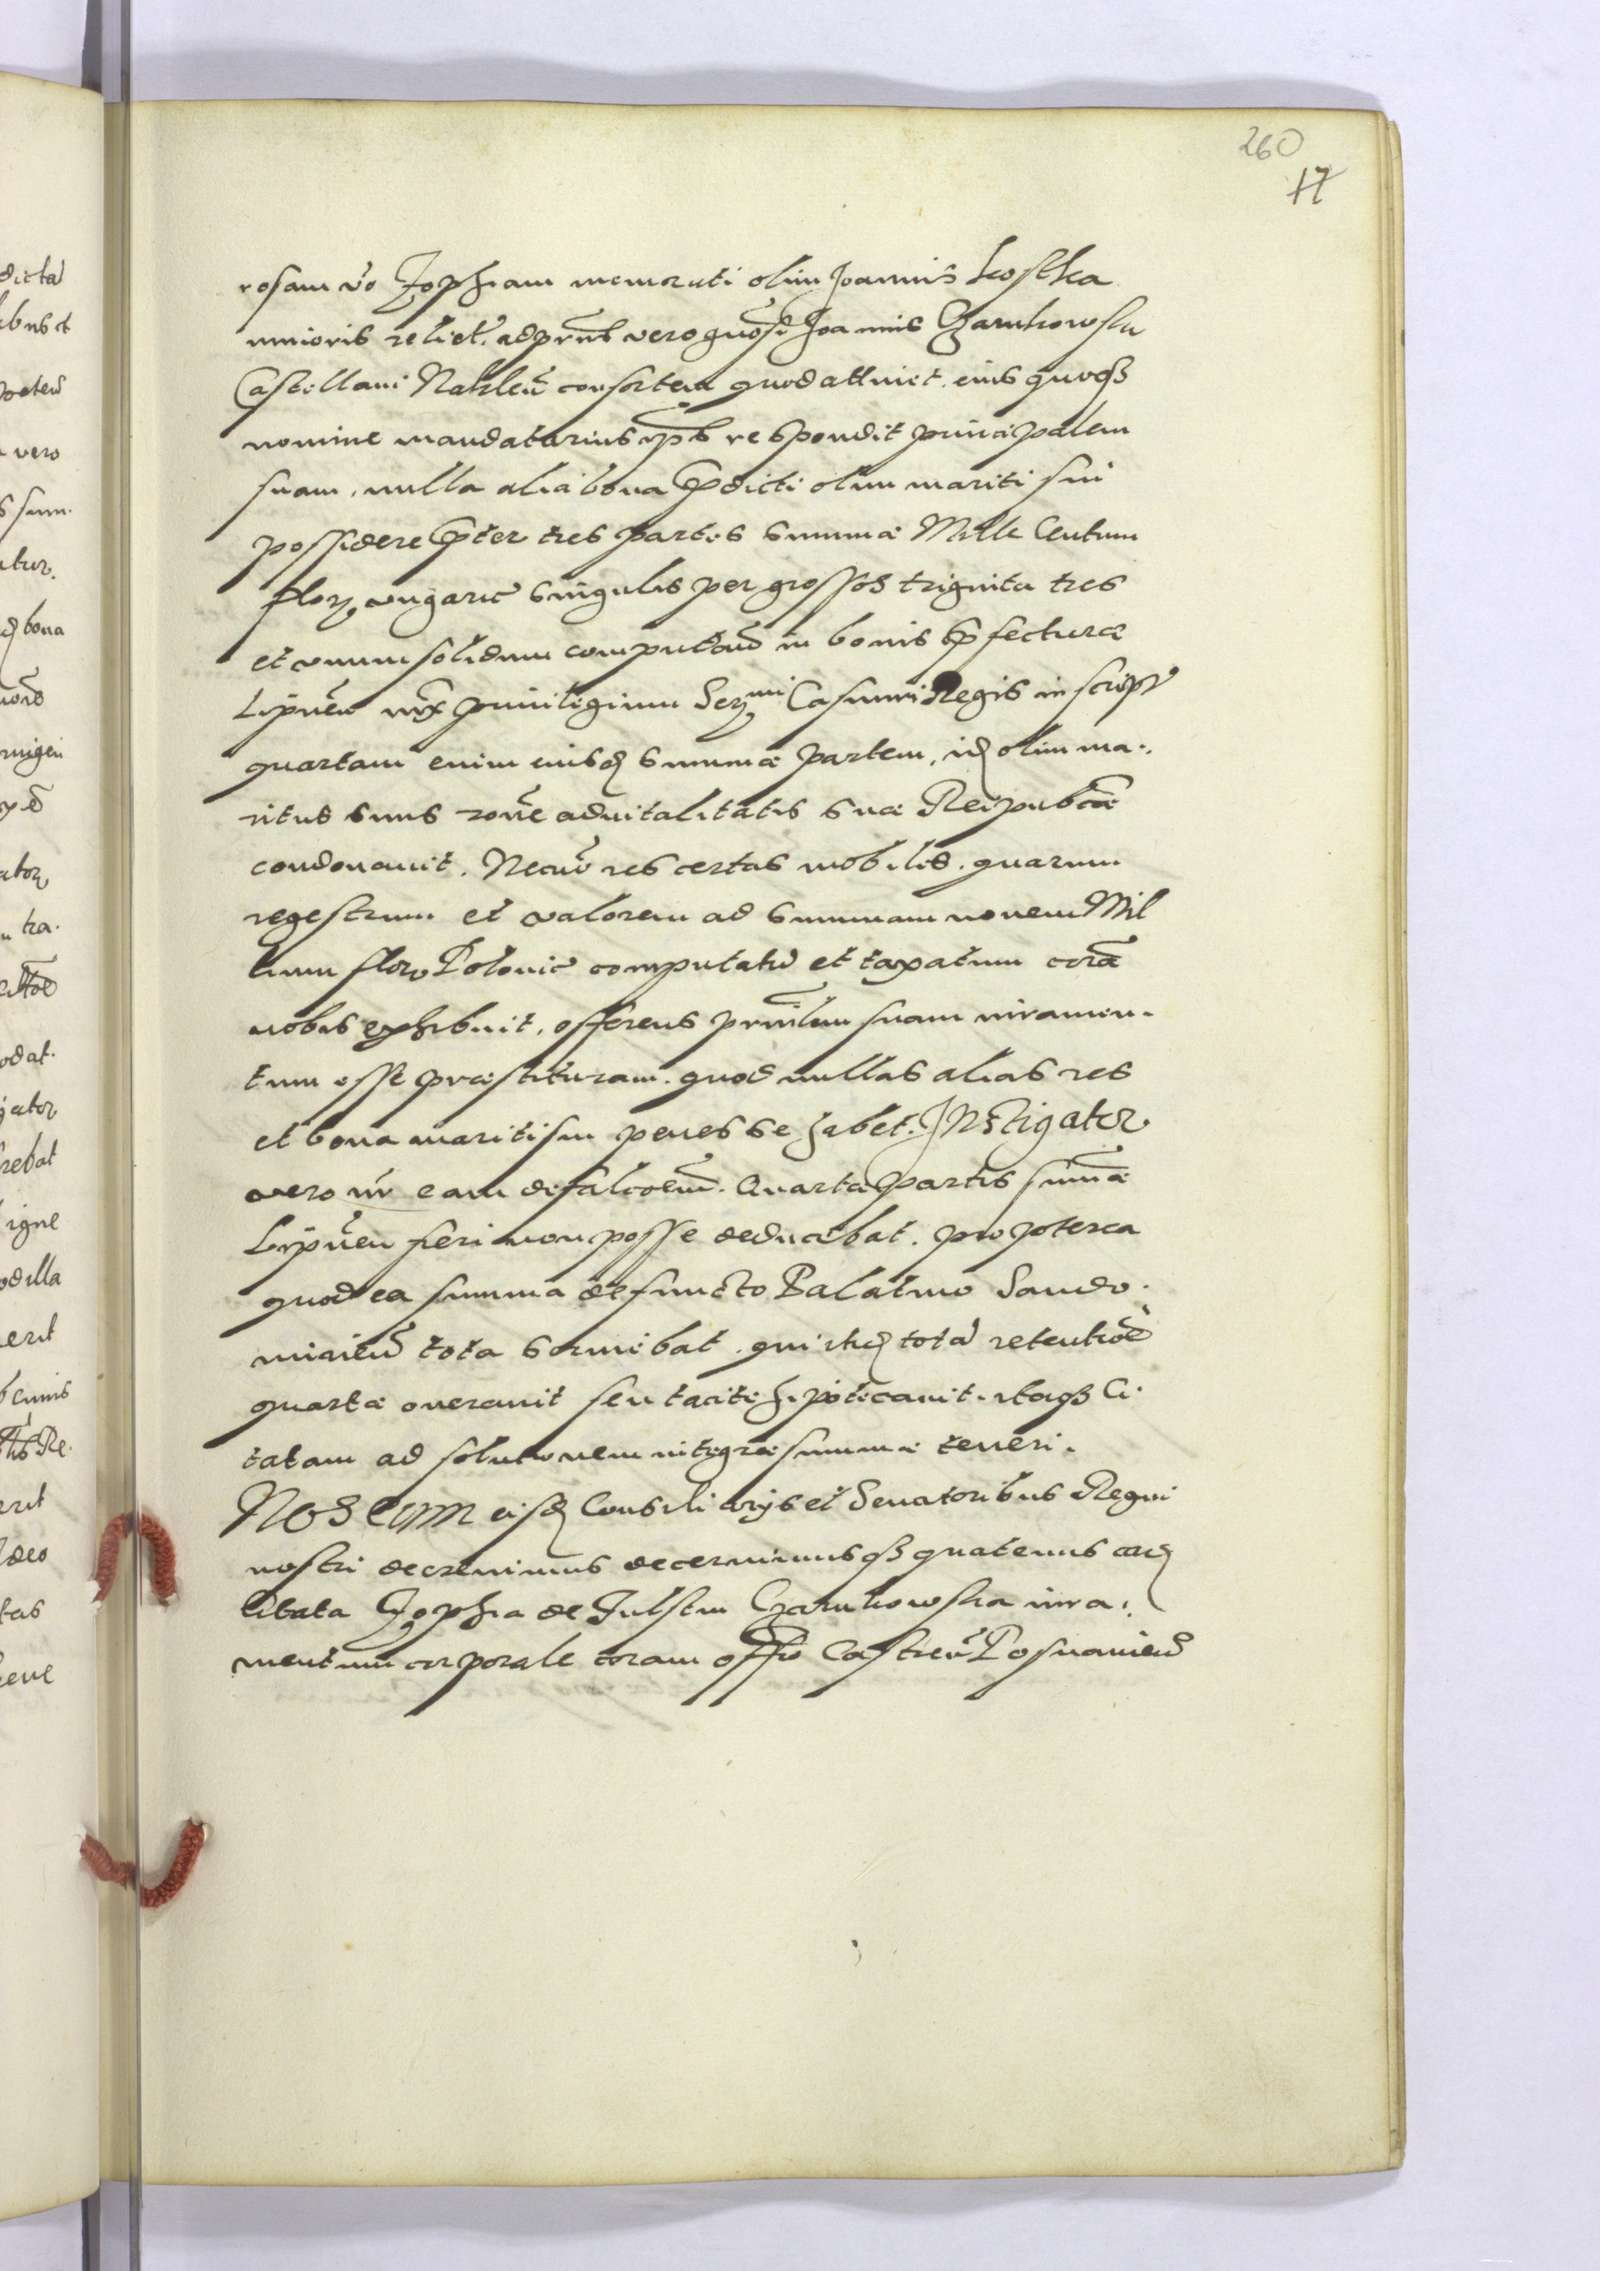 260
17
rosam vo Zophiam memorati olim Joannis Kostka
iunioris relict. ad prns vero gnosi Joannis Czarnkowsky
Castellani Naklen consortem quod attinet. eius quoqз
nomine mandatarius ips respondit principalem
suam, nulla alia bona pdicti olim mariti sui
possidere pter tres partes summæ Mille Centum
flor, vngaric singulis per grossos triginta tres
et vnum solidum computand in bonis pfecturæ
Lipnen iux priuilegium Ser,mi Casimiri Regis inscript
quartam enim eiusd summæ partem, id olim ma.,
ritus suus rone aduitalitatis suæ Reipubcæ
condonauit. Necno res certas mobiles. quarum
regestrum et valorem ad summam nouem Mil
lium flor Polonic computatu et taxatum cora
nobis exhibuit, offerens prncilem suam iuramen.
tum esse præstituram. quod nullas alias res
et bona mariti sui penes se habet. Instigator
vero nr eam defalcoem. Quartæ partis summæ
Lipnen fieri non posse deducebat. propterea
quod ea summa defuncto Palatino Sando.
mirien tota seruiebat. qui itid tota retentioe
quartæ onerauit seu tacite hipotecauit. itaqз Ci.
tatam ad solutionem integræ summæ teneri.
Nos cum eisd Consiliarijs et Senatoribus Regni
nostri decreuimus decernimusqз quatenus ead
Citata Zophia de Fulstin Czarnkowska iura.,
mentum corporale coram offo Castren Posnanien